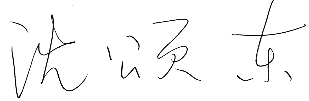 沈颂东